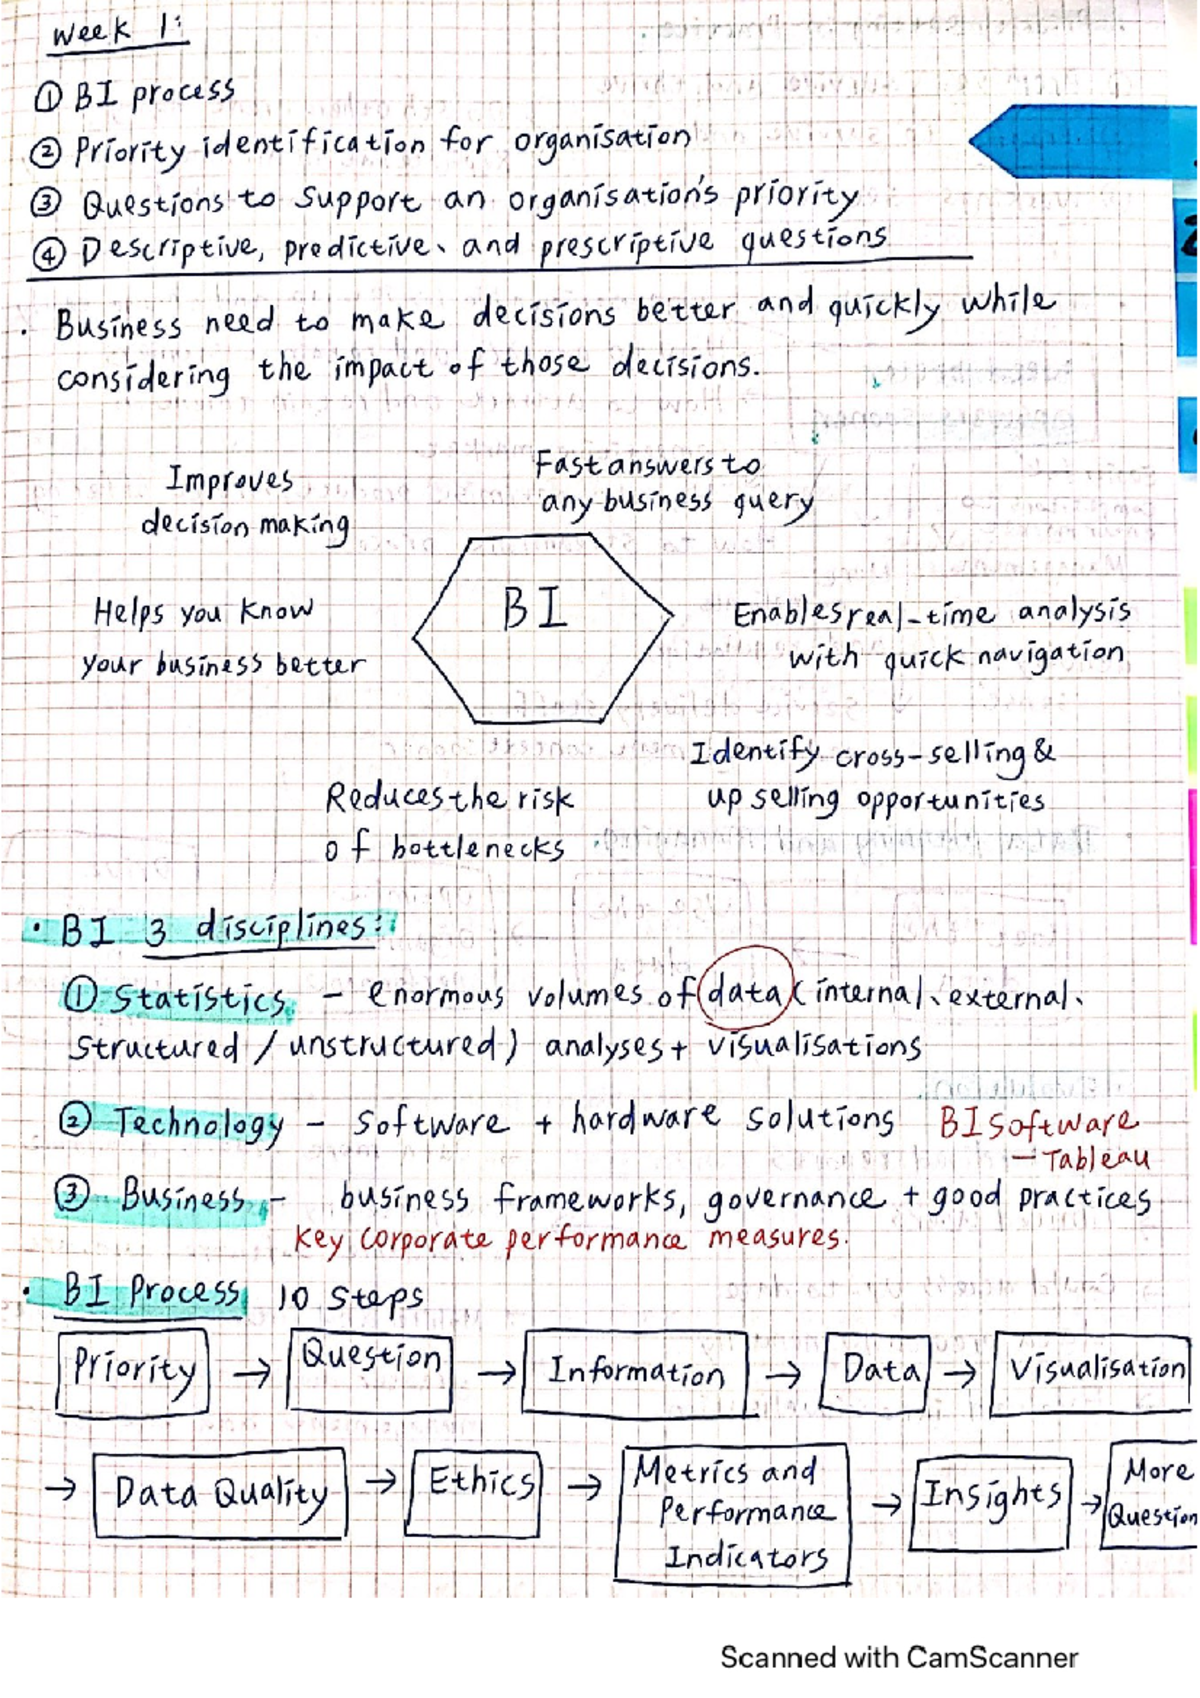 Week 1:
① BI process
② Priority identification for organisation
③ Questions to support an organisation's priority
④ Descriptive, predictive、and prescriptive questions
· Business need to make decisions better and quickly while
considering the impact of those decisions.
Improves
decision making
Fast answers to
any business query
BI
Helps you know
your business better
Enables real-time analysis
with quick navigation
Identify cross-selling &
up selling opportunities
Reduces the risk
of bottlenecks
· BI 3 disciplines:
① Statistics - enormous volumes of data (internal、external、
structured / unstructured) analyses + visualisations
② Technology - software + hardware solutions BI software
- Tableau
③ Business - business frameworks, governance + good practices
key corporate performance measures.
· BI Process 10 steps
Priority → Question → Information → Data → Visualisation
→ Data Quality → Ethics → Metrics and Performance Indicators → Insights → More Question
Scanned with CamScanner